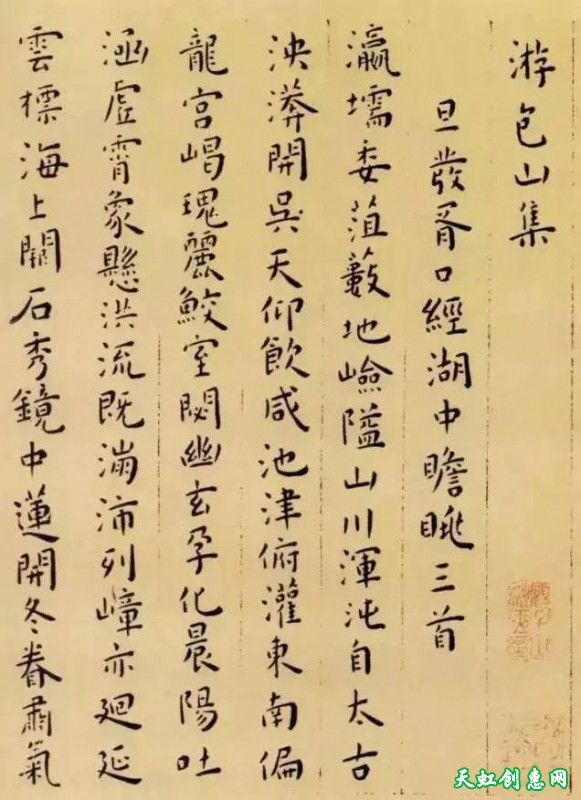 游包山集
旦發胥口經湖中瞻眺三首
瀛壖委菹藪地嶮隘山川渾沌自太古
泱漭開吳天仰飲咸池津俯灌東南偏
龍宮嵑瑰麗鮫室閟幽玄孕化晨陽吐
涵虛霄象懸洪流既滿沛列嶂亦廻延
雲標海上關石秀鏡中蓮開冬眷肅氣
天虹创惠网